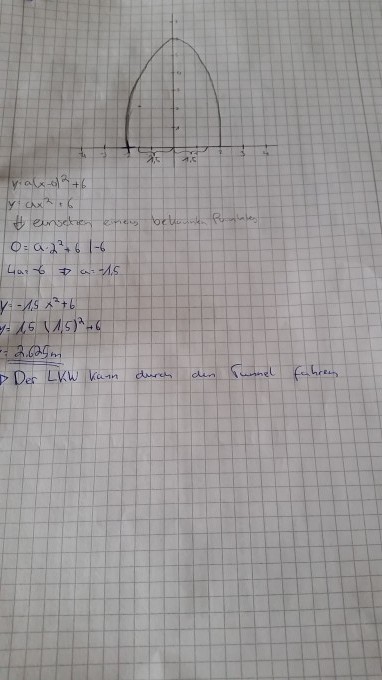 -4 2 3 4
1,5 1,5
y=a(x-0)²+6
y=ax²+6
einsetzen eines bekannten Punktes
0=a·2²+6 |-6
4a=-6 ⇒ a=-1,5
y=-1,5 x²+6
y=1,5 (1,5)²+6
=2,625m
Der LKW kann durch den Tunnel fahren